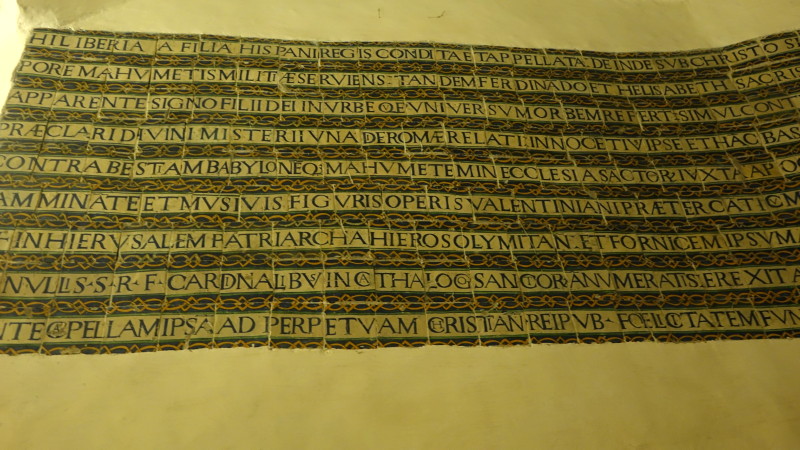 HILIBERIA A FILIA HISPANI REGIS CONDITA ET APPELLATA DEINDE SVB CHRISTO
MAHVMETIS MILITÆ SERVIENS TANDEM FERDINADO ET HELISABETH SACRIS
APPARENTE SIGNO FILII DEI IN VRBE QE VNIVERSVM ORBEM REFERT SIMVL
PRÆCLARI DIVINI MISTERII VNA DE ROMÆ RELATI INNOCETIV IPSE ET HAC
CONTRA BESTIAM BABYLONEQ MAHVMETEM IN ECCLESIA SACTOR IVXTA
ET MVSIVIS FIGVRIS OPERIS VALENTINIANI PRÆTER
IN HIERVSALEM PATRIARCHA HIEROSOLYMITAN ET FORNICEM IPSVM
S R F CARDNALIBV IN CATHALOG SANCTOR ANVMERATIS EREXIT
IPSA AD PERPETVAM CHRISTIAN REIPVB